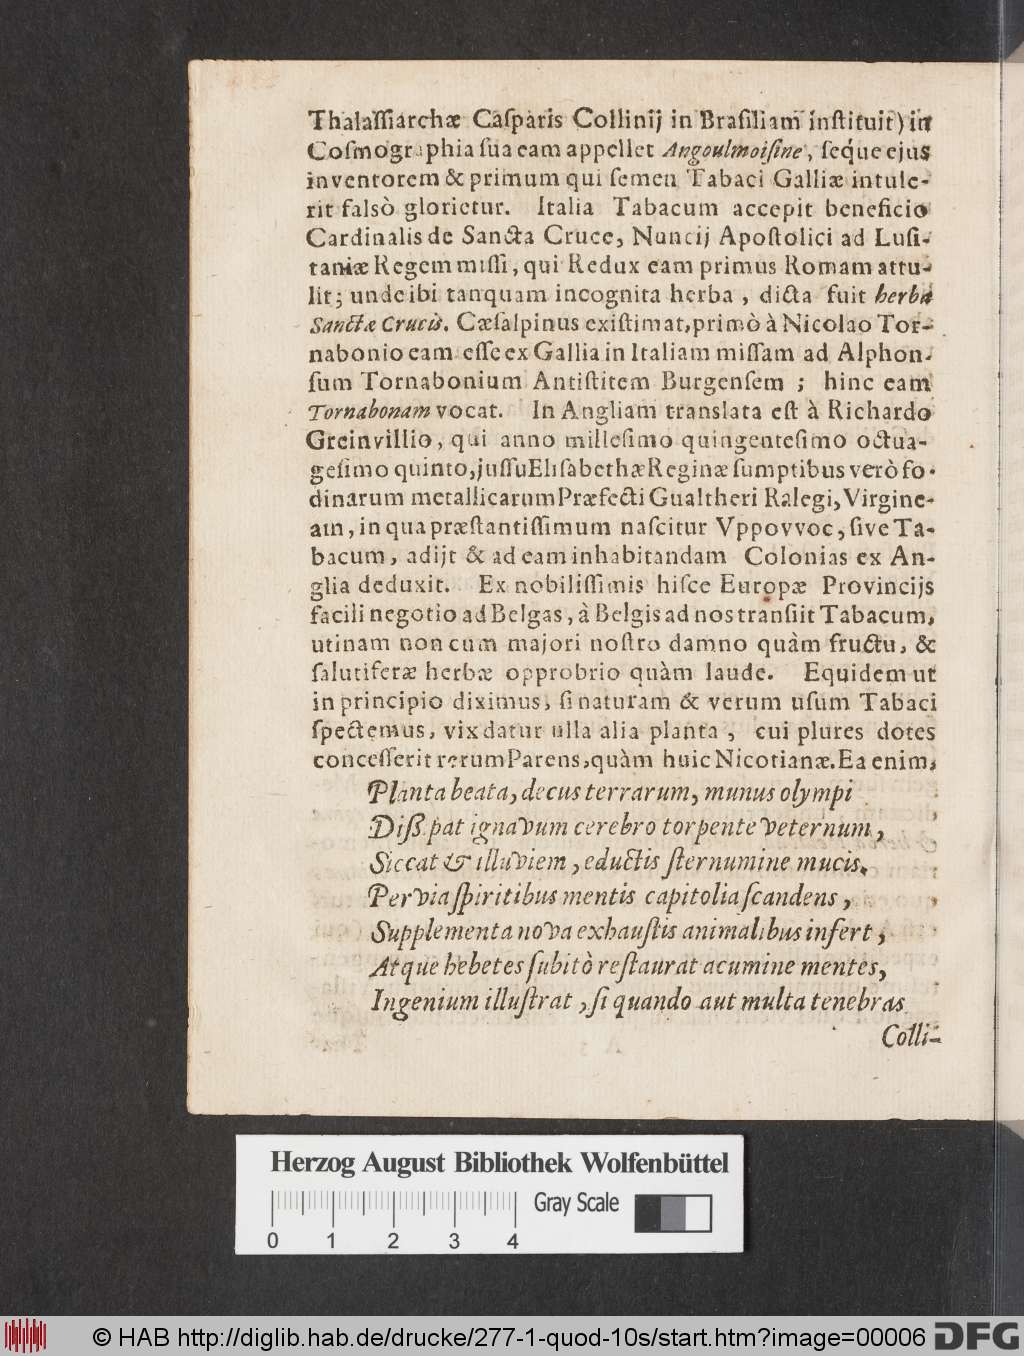 Thalaſſiarchæ Caſparis Collinij in Braſiliam inſtituit) in
Coſmographia ſua eam appellet Angoulmoiſine, ſeq́ue ejus
inventorem & primum qui ſemen Tabaci Galliæ intule-
rit falsò glorietur. Italia Tabacum accepit beneficio
Cardinalis de Sancta Cruce, Nuncij Apoſtolici ad Luſi-
taniæ Regem miſſi, qui Redux eam primus Romam attu-
lit; unde ibi tanquam incognita herba, dicta fuit herba
Sanctæ Crucis. Cæſalpinus exiſtimat, primò à Nicolao Tor-
nabonio eam eſſe ex Gallia in Italiam miſſam ad Alphon-
ſum Tornabonium Antiſtitem Burgenſem; hinc eam
Tornabonam vocat. In Angliam translata eſt à Richardo
Greinvillio, qui anno milleſimo quingenteſimo octua-
geſimo quinto, juſſu Eliſabethæ Reginæ ſumptibus verò fo-
dinarum metallicarum Præfecti Gualtheri Ralegi, Virgine-
am, in qua præſtantiſſimum naſcitur Vppovvoc, ſive Ta-
bacum, adijt & ad eam inhabitandam Colonias ex An-
glia deduxit. Ex nobiliſſimis hiſce Europæ Provincijs
facili negotio ad Belgas, à Belgis ad nos tranſiit Tabacum,
utinam non cum majori noſtro damno quàm fructu, &
ſalutiferæ herbæ opprobrio quàm laude. Equidem ut
in principio diximus, ſi naturam & verum uſum Tabaci
ſpectemus, vix datur ulla alia planta, cui plures dotes
conceſſerit rerum Parens, quàm huic Nicotianæ. Ea enim,
Planta beata, decus terrarum, munus olympi
Diſſipat ignavum cerebro torpente veternum,
Siccat & illuviem, eductis ſternumine mucis.
Pervia ſpiritibus mentis capitolia ſcandens,
Supplementa nova exhauſtis animalibus infert,
Atque hebetes ſubitò reſtaurat acumine mentes,
Ingenium illuſtrat, ſi quando aut multa tenebras
Colli-
Herzog August Bibliothek Wolfenbüttel
Gray Scale
0 1 2 3 4
© HAB http://diglib.hab.de/drucke/277-1-quod-10s/start.htm?image=00006 DFG